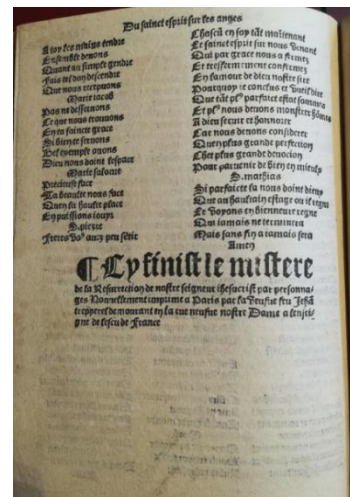 Du sainct esprit sur les anges
A toy les mains tendre
Ensemble devons
Quant au simple gendre
Fais ses dons descendre
Que nous recepuons
Marie iacob
Pas ne desseruons
Ce que nous trouuons
En ta saincte grace
Si bien te seruons
Bel exemple auons
Dieu nous doint lespace
Marie salome
Precieuse face
Ta beaulte nous face
Quen sa haulte place
En puissions iouyr
S. pierre
Freres vo⁹ auez peu sētir
Chascū en soy tāt maītenant
Le sainct esprit sur nous venant
Qui par grace nous a fermez
Et tresferm ment confermez
En lamour de dieu nostre sire
Pourquoy ie conclus et vueil dire
Que tāt pl⁹ parfaict est
Et pl⁹ nous deuons monstrer
A dieu seruir et honnorer
Car nous deuons considerer
Quen plus grande perfection
Chet plus grande deuocion
Pour paruenir de bien en mieulx
S. mathias
Si parfaicte la nous doint dieux
Que au haultain estage ou il regne
Le voyons en bienneure regne
Qui iamais ne terminera
Mais sans fin a iamais sera
Amen
¶ Cy finist le mistere
de la Resurrection de nostre seigneur ihesucrist par personna-
ges Nouuellement imprime a Paris par la veufue feu Iehā
trepperel demourant en la rue neufue nostre Dame a lensei-
gne de lescu de France